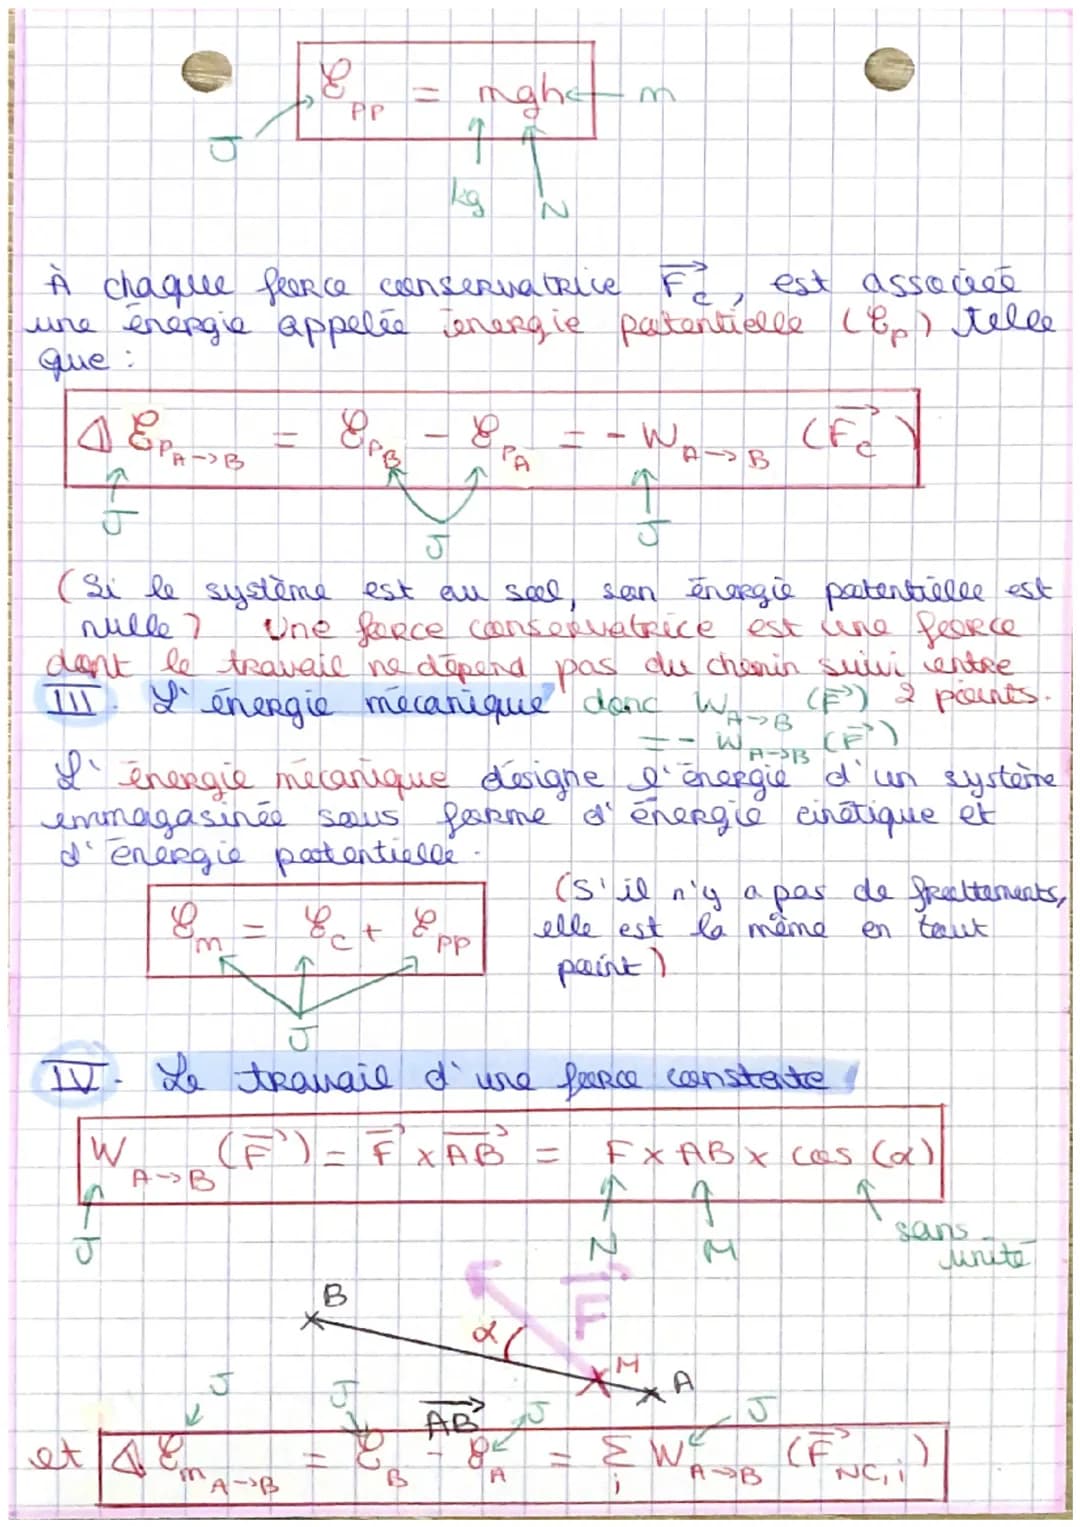 ℰpp = mgh ← m
J
kg N
À chaque force conservatrice F⃗c, est associée
une énergie appelée énergie potentielle (ℰp) telle
que :
Δ ℰpA→B = ℰpB - ℰpA = - W A→B (F⃗c)
J J J
(Si le système est au sol, son énergie potentielle est
nulle) Une force conservatrice est une force
dont le travail ne dépend pas du chemin suivi entre
III. L'énergie mécanique donc W A→B (F⃗) 2 points.
= - W A→B (F⃗)
L'énergie mécanique désigne l'énergie d'un système
emmagasinée sous forme d'énergie cinétique et
d'énergie potentielle.
(S'il n'y a pas de frottements,
ℰm = ℰc + ℰpp elle est la même en tout
point)
J
IV. Le travail d'une force constante
W A→B (F⃗) = F⃗ x AB⃗ = F x AB x cos (α)
J N M sans unité
F⃗
B
α
M A
J J AB⃗ J J
et Δ ℰm A→B = ℰB - ℰA = Σi W A→B (F⃗NC,i)